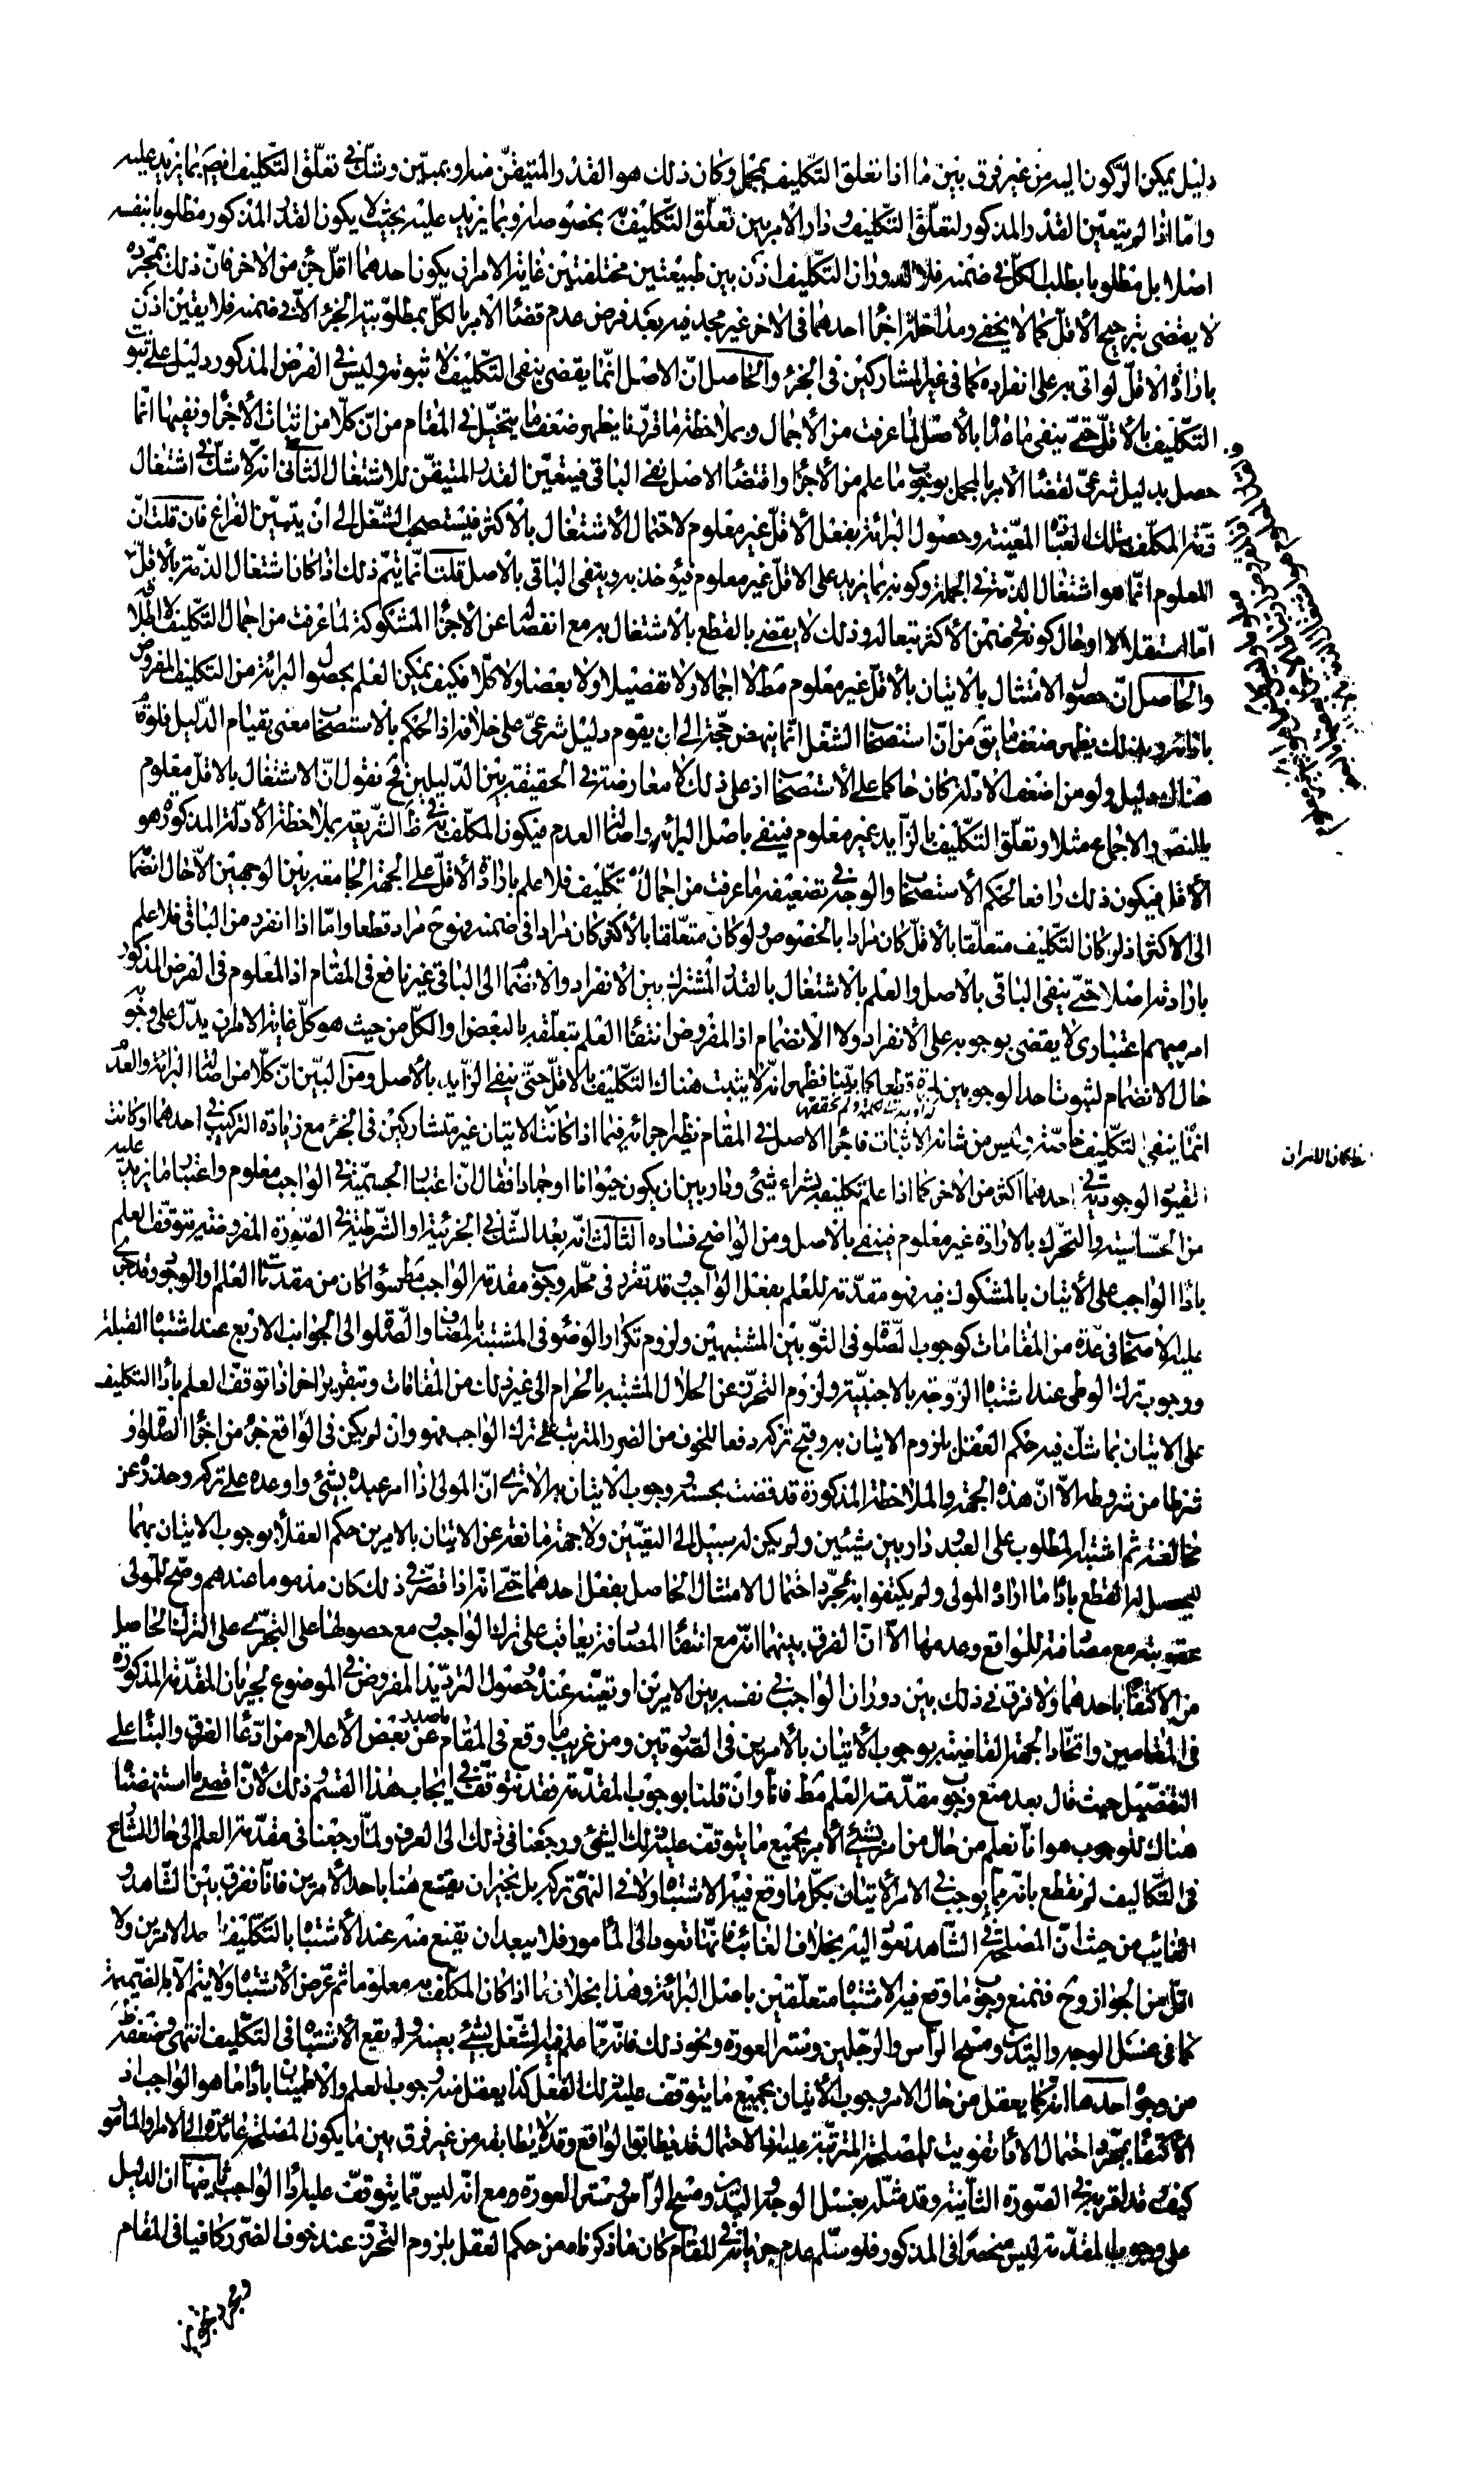 دليل يمكن الركون اليه من غير فرق بين ما اذا تعلق التكليف بمجمل وكان ذلك هو القدر المتيقن منه او بمبين وشك في تعلق التكليف ايضا بما يزيد عليه
واما اذا لم يتعين القدر المذكور لتعلق التكليف ودار الامر بين تعلق التكليف به بخصوصه او بما يزيد عليه بحيث لا يكون القدر المذكور مطلوبا بنفسه
اصلا بل مطلوبا بطلب الكل في ضمنه فلا لدوران التكليف اذن بين طبيعتين مختلفتين غاية الامر ان يكون احدهما اقل جزء من الاخر فان ذلك بمجرده
لا يقضى بترجيح الاقل كما لا يخفى ومداخلة اجزاء احدهما في الاخر غير مجد فيه بعد فرض عدم قضاء الامر بالكل بمطلوبية الجزء الا في ضمنه فلا يقين اذن
بارادة الاقل لو اتى به على انفراده كما في غير المشاركين في الجزء والحاصل ان الاصل انما يقضى بنفى التكليف لا ثبوته وليس في الفرض المذكور دليل على ثبوت
التكليف بالاقل حتى ينفى ما زاد بالاصل لما عرفت من الاجمال وبملاحظة ما قررنا يظهر ضعف ما يتخيل في المقام من ان كلا من اثبات الاجزاء ونفيها انما
حصل بدليل شرعي لقضاء الامر بالمجمل بوجوب ما علم من الاجزاء واقتضاء الاصل نفى الباقى فيتعين القدر المتيقن للاشتغال الثانى انه لا شك في اشتغال
ذمة المكلف بتلك العبادة المعينة وحصول البرائة بفعل الاقل غير معلوم لاحتمال الاشتغال بالاكثر فيستصحب الشغل الى ان يتبين الفراغ فان قلت ان
المعلوم انما هو اشتغال الذمة في الجملة وكونه بما يزيد على الاقل غير معلوم فيؤخذ به وينفى الباقى بالاصل قلنا انما يتم ذلك اذا كان اشتغال الذمة بالاقل
اما استقلالا او حال كونه في ضمن الاكثر تبعا له وذلك لا يقضى بالقطع بالاشتغال به مع انفصاله عن الاجزاء المشكوكة لما عرفت من اجمال التكليف لا اطلاقه
والحاصل ان حصول الامتثال بالاتيان بالاقل غير معلوم مط لا اجمالا ولا تفصيلا ولا بعضا ولا كلا فكيف يمكن العلم بحصول البرائة من التكليف المفروض
باتيانه وبذلك يظهر ضعف ما يق من ان استصحاب الشغل انما ينهض حجة الى ان يقوم دليل شرعي على خلافه اذ الحكم بالاستصحاب مغيى بقيام الدليل فلو قام
هناك دليل ولو من اضعف الادلة كان حاكما على الاستصحاب اذ على ذلك لا معارضة في الحقيقة بين الدليلين فح نقول ان الاشتغال بالاقل معلوم
بالنص والاجماع مثلا وتعلق التكليف بالزايد غير معلوم فينفى باصل البرائة واصالة العدم فيكون المكلف به في ظ الشريعة بملاحظة الادلة المذكورة هو
الاقل فيكون ذلك رافعا لحكم الاستصحاب والوجه في تضعيفه ما عرفت من اجمال تكليف فلا علم بارادة الاقل على الجهة الجامعة بين الوجهين الا حال انضمامه
الى الاكثر اذ لو كان التكليف متعلقا بالاقل كان مرادا بالخصوص ولو كان متعلقا بالاكثر كان مرادا في ضمنه فهو ح مراد قطعا واما اذا انفرد من الباقى فلا علم
بارادته اصلا حتى ينفى الباقى بالاصل والعلم بالاشتغال بالقدر المشترك بين الانفراد والانضمام الى الباقى غير نافع في المقام اذ المعلوم في الفرض المذكور
امر مبهم اعتبارى لا يقضى بوجوبه على الانفراد ولا الانضمام اذ المفروض انتفاء العلم بتعلقه بالبعض او الكل من حيث هو كل غاية الامر ان يدل على وجوبه
حال الانضمام لثبوت احد الوجوبين له ح قطعا كما بينا فظهر انه لا يثبت هناك التكليف بالاقل حتى ينفى الزايد بالاصل ومن البين ان كلا من اصالة البرائة والعدم
انما ينفى التكليف خاصة وليس من شانه الاثبات فاجراء الاصل في المقام نظير جرائه فيما اذا كانت الاتيان غير متشاركين في الجزء مع زيادة التركيب في احدهما او كانت
القيود الوجودية في احدهما اكثر من الاخر كما اذا علم تكليفه بشراء شئ ودار بين ان يكون حيوانا او جمادا فقال ان اعتبار الجسمية في الواجب معلوم واعتبار ما يزيد عليه
من الحساسية والتحرك بالارادة غير معلوم فينفى بالاصل ومن الواضح فساده الثالث انه بعد الشك في الجزئية او الشرطية في الصورة المفروضة يتوقف العلم
باداء الواجب على الاتيان بالمشكوك فيه فهو مقدمة للعلم بفعل الواجب وقد تقرر في محله وجوب مقدمة الواجب مط سواء كان من مقدمات العلم او الوجود وقد جرى
عليه الاصحاب في عدة من المقامات كوجوب الصلوة في الثوبين المشتبهين ولزوم تكرار الوضوء في المشتبه بالمضاف والصلوة الى الجوانب الاربع عند اشتباه القبلة
ووجوب ترك الوطى عند اشتباه الزوجة بالاجنبية ولزوم التحرز عن الحلال المشتبه بالحرام الى غير ذلك من المقامات وبتقرير اخر اذا توقف العلم باداء التكليف
على الاتيان بما شك فيه حكم العقل بلزوم الاتيان به وقبح تركه دفعا للخوف من الضرر المترتب على ترك الواجب فهو وان لم يكن في الواقع جزء من اجزاء الصلوة او
شرطا من شروطه الا ان هذه الجهة والملاحظة المذكورة قد قضت بحسنه ووجوب الاتيان به الا ترى ان المولى اذا امر عبده بشئ واوعده على تركه وحذره عن
مخالفته ثم اشتبه المطلوب على العبد ودار بين شيئين ولم يكن له سبيل الى التعيين ولا جهة مانعة عن الاتيان بالامرين حكم العقلاء بوجوب الاتيان بهما
ليحصل له القطع باداء ما اراده المولى ولم يكتفوا منه بمجرد احتمال الامتثال الحاصل بفعل احدهما حتى انه اذا قصر في ذلك كان مذموما عندهم وصح للمولى
عقوبته مع مصادفته للواقع وعدمها الا ان الفرق بينهما انه مع انتفاء المصادفة يعاقب على ترك الواجب ومع حصولها على التجرى على الترك الحاصل
من الاكتفاء باحدهما ولا فرق في ذلك بين دوران الواجب في نفسه بين الامرين او تعينه عند حصول الترديد المفروض في الموضوع لجريان المقدمة المذكورة
في المقامين واتحاد الجهة القاضية بوجوب الاتيان بالامرين في الصورتين ومن غريب ما وقع في المقام ما صدر عن بعض الاعلام من ادعاء الفرق والبناء على
التفصيل حيث قال بعد منع وجوب مقدمة العلم مط فانا وان قلنا بوجوب المقدمة فقد نتوقف في ايجاب هذا القسم وذلك لان اقصى ما استنهضنا
هناك للوجوب هو انا نعلم من حال من امر بشئ الامر بجميع ما يتوقف عليه ذلك الشئ ورجعنا في ذلك الى العرف ولما رجعنا في مقدمة العلم الى حال الشارع
في التكاليف لم نقطع بانه مما يوجب في الامر الاتيان بكل ما وقع فيه الاشتباه ولا في النهى تركه بل نجيز ان يقنع هنا باحد الامرين فانا نفرق بين الشاهد و
الغائب من حيث ان المصلحة في الشاهد تعود اليه بخلاف الغائب فانها تعود الى المأمور فلا يبعد ان يقنع منه عند الاشتباه بالتكليف باحد الامرين ولا
اقل من الجواز وح فنمنع وجوب ما وقع فيه الاشتباه متعلقين باصل البرائة وهذا بخلاف ما اذا كان المكلف به معلوما ثم عرض الاشتباه ولا يتم الا بالضميمة
كما في غسل الوجه واليدين ومسح الرأس والرجلين وستر العورة ونحو ذلك فانه مما علم فيه الشغل بشئ بعينه ولم يقع الاشتباه في التكليف انتهى وضعفه ظ
من وجوه احدها انه كما يعقل من حال الامر وجوب الاتيان بجميع ما يتوقف عليه ذلك الفعل كذا يعقل منه وجوب العلم والاطمينان باداء ما هو الواجب اذ
الاكتفاء بمجرد احتمال الاداء تفويت للمصلحة المترتبة عليه فالاحتمال قد يطابق الواقع وقد لا يطابقه من غير فرق بين ما يكون المصلحة عائدة الى الامر او المأمور
كيف وقد اقر به في الصورة الثانية وقد مثله بغسل الوجه واليدين ومسح الراس وستر العورة ومع انه ليس مما يتوقف عليه اداء الواجب ثانيها ان الدليل
على وجوب المقدمة ليس منحصرا في المذكور فلو سلم عدم جريانه في المقام كان ما ذكرناه من حكم العقل بلزوم التحرز عند خوف الضرر كافيا في المقام